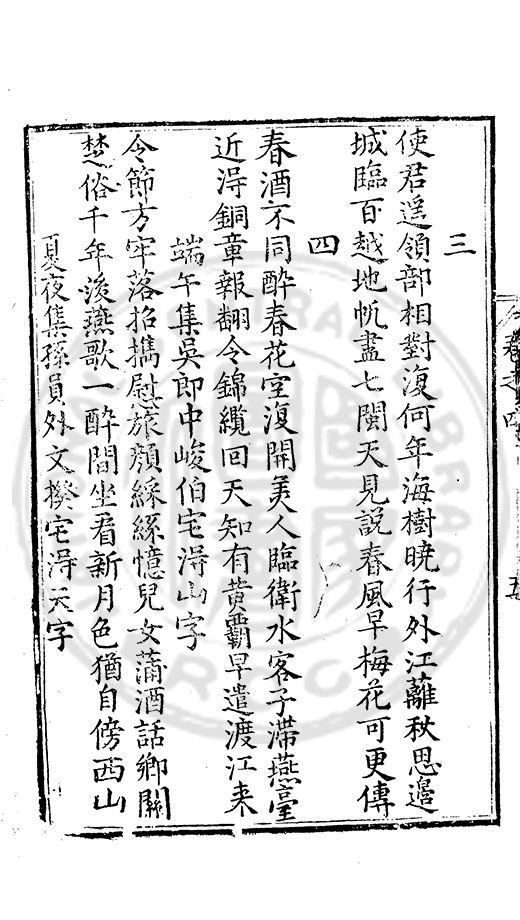 三
使君遥領部相對復何年海樹曉行外江蘺秋思邊
城臨百越地帆盡七閩天見說春風早梅花可更傳
四
春酒不同醉春花空復開美人臨衛水客子滯燕臺
近得銅章報翻令錦纜回天知有黃霸早遣渡江来
端午集吳郎中峻伯宅得山字
令節方牢落招攜慰旅顏綵絲憶兒女蒲酒話鄉關
楚俗千年後燕歌一醉間坐看新月色猶自傍西山
夏夜集孫員外文揆宅得天字
卷之四